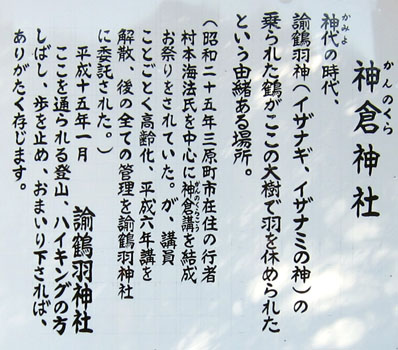 神倉神社
かんのくら
神代の時代、
かみよ
諭鶴羽神（イザナギ、イザナミの神）の
乗られた鶴がここの大樹で羽を休められた
という由緒ある場所。
（昭和二十五年三原町市在住の行者
村本海法氏を中心に神倉講を結成
かんのくらこう
お祭りをされていた。が、講員
ことごとく高齢化、平成六年講を
解散、後の全ての管理を諭鶴羽神社
に委託された。）
平成十五年一月
諭鶴羽神社
ここを通られる登山、ハイキングの方
しばし、歩を止め、おまいり下されば、
ありがたく存じます。